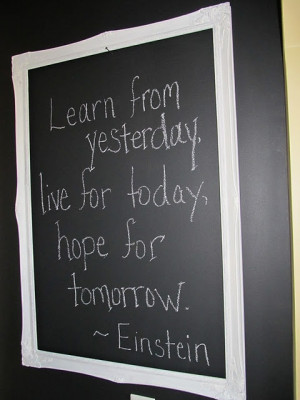 Learn from
yesterday,
live for today,
hope for
tomorrow.
~ Einstein